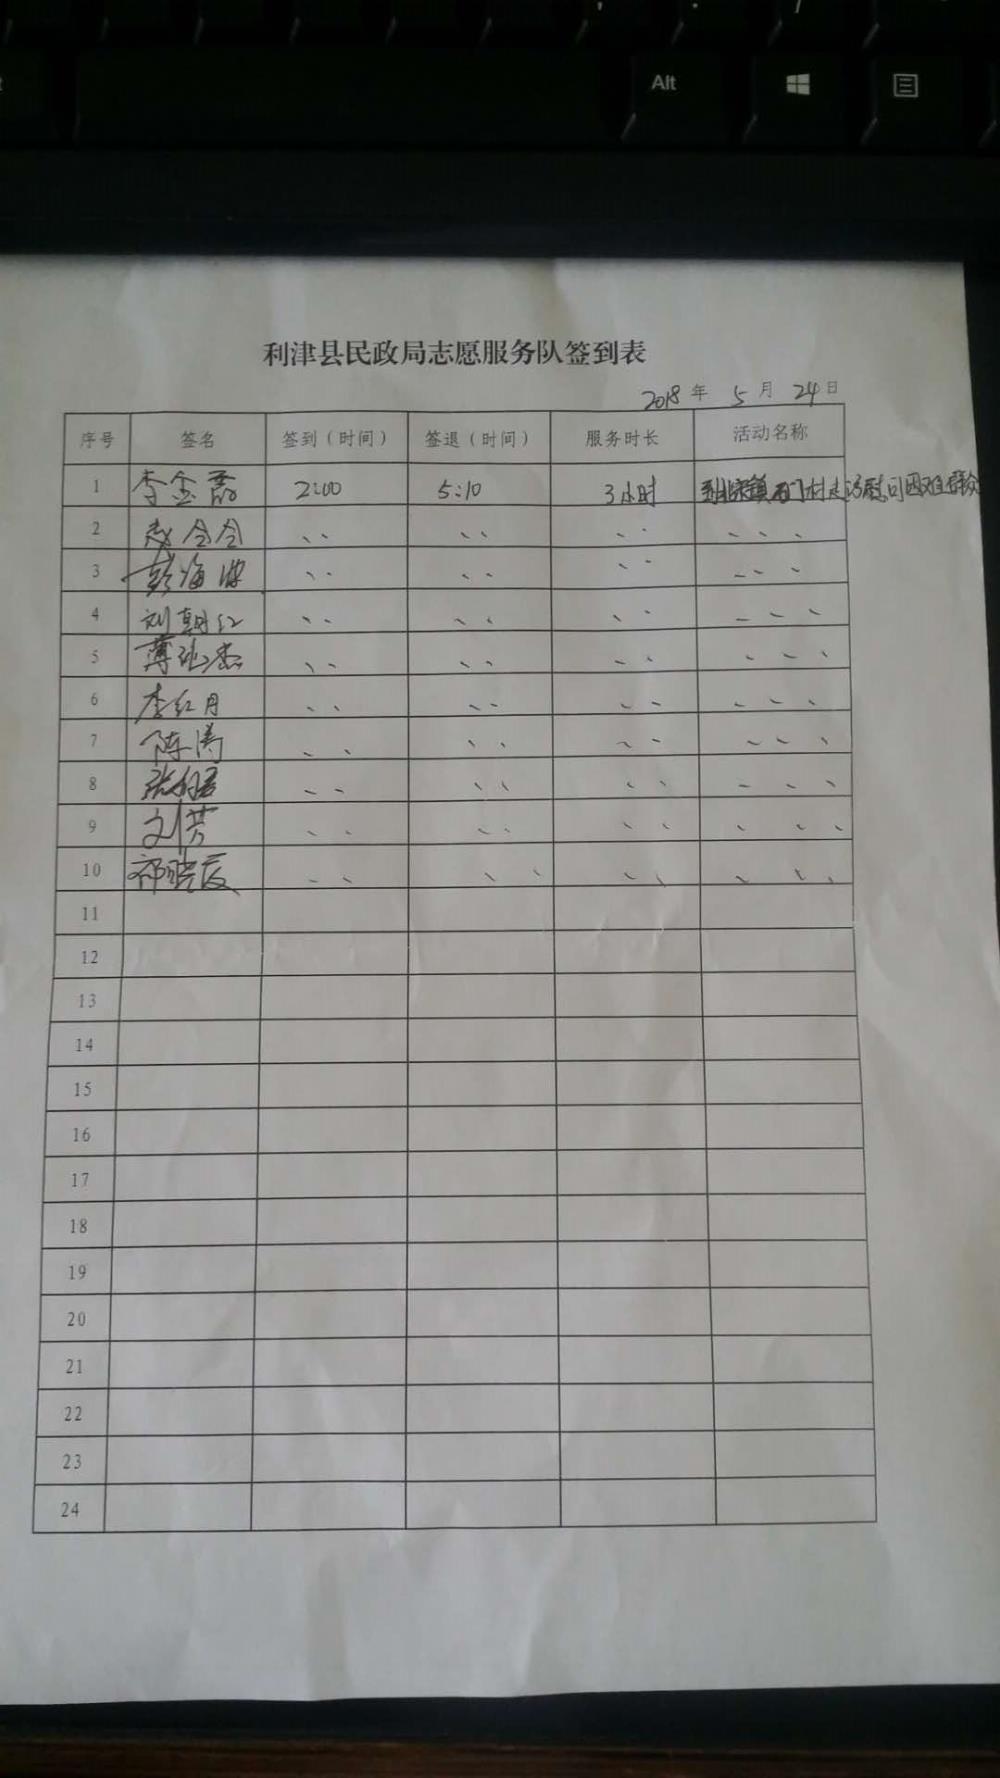 Alt
利津县民政局志愿服务队签到表
2018 年 5 月 24 日
序号 签名 签到（时间） 签退（时间） 服务时长 活动名称
1 李金磊 2:00 5:10 3小时 到北宋镇石门村走访慰问困难群众
2 赵令令 、、 、、 、、 、、、
3 彭海波 、、 、、 、、 、、、
4 刘朝红 、、 、、 、、 、、、
5 薄 杰 、、 、、 、、 、、、
6 李红月 、、 、、 、、 、、、
7 陈涛 、、 、、 、、 、、、
8 张 君 、、 、、 、、 、、、
9 刘芳 、、 、、 、、 、、、
10 祁晓 、、 、、 、、 、、、
11
12
13
14
15
16
17
18
19
20
21
22
23
24